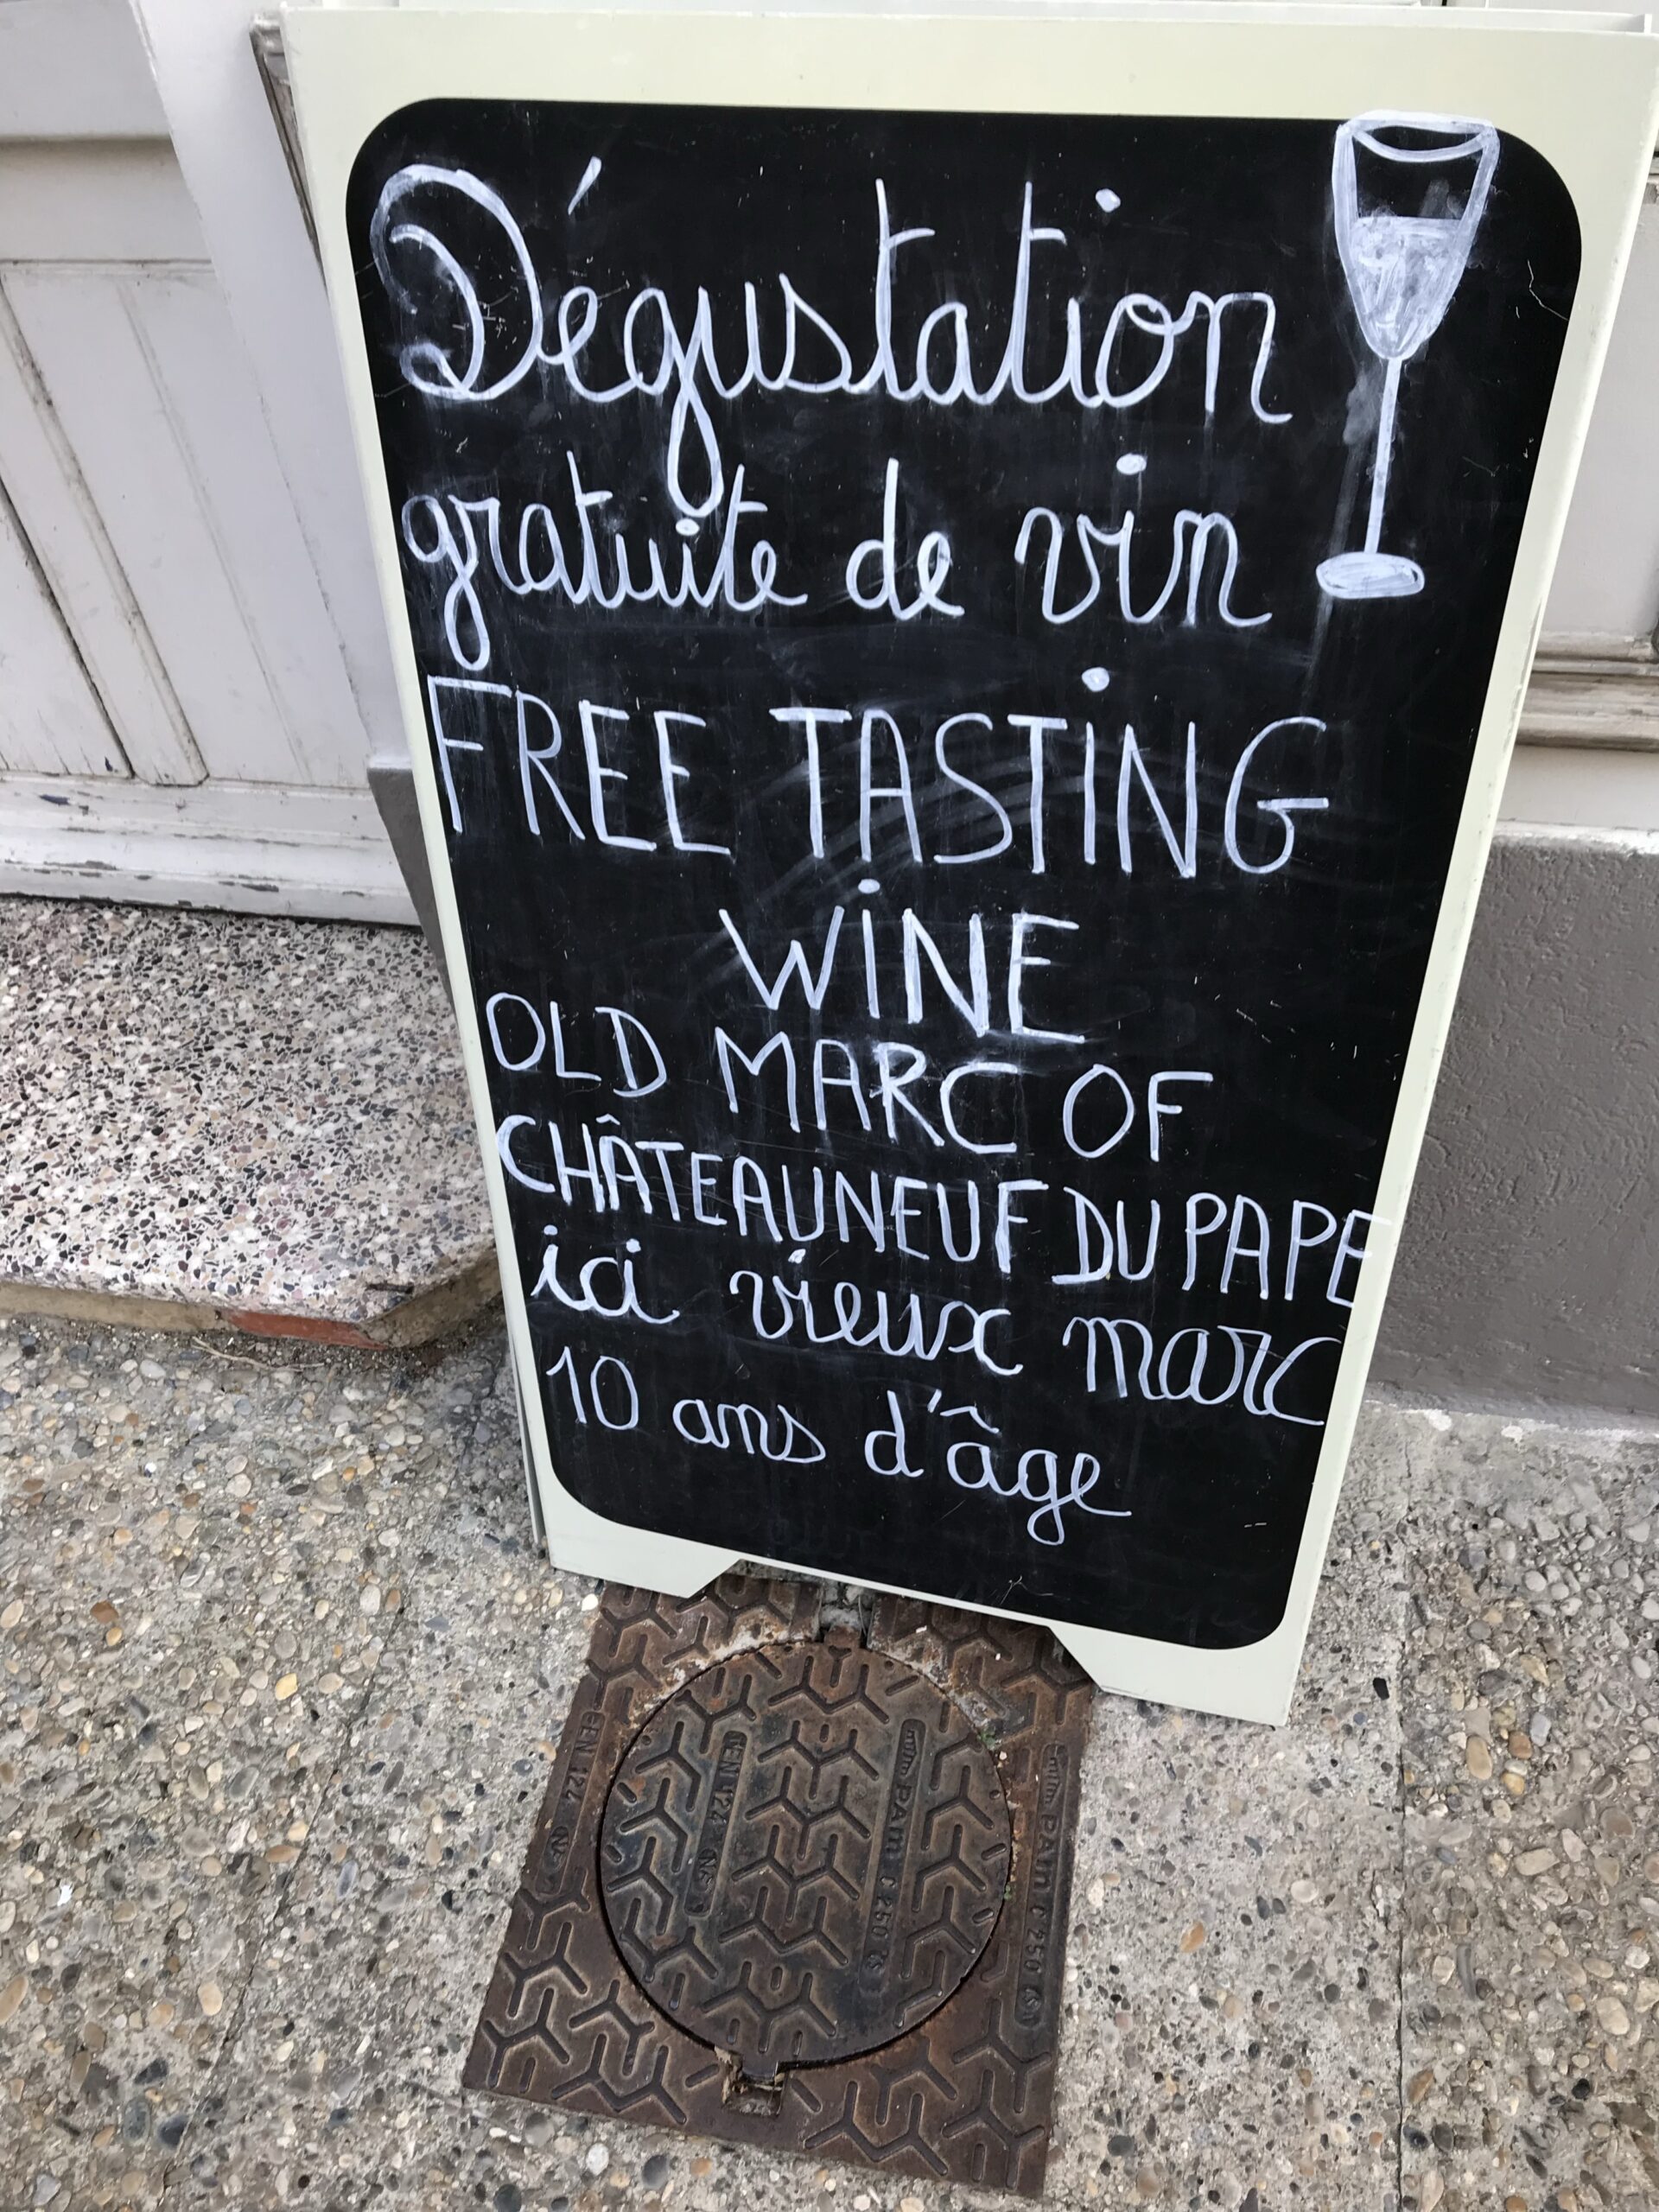 Dégustation
gratuite de vin
FREE TASTING
WINE
OLD MARC OF
CHÂTEAUNEUF DU PAPE
ici vieux marc
10 ans d'âge
EN 124
EN 124
PAM C 250
PAM C 250